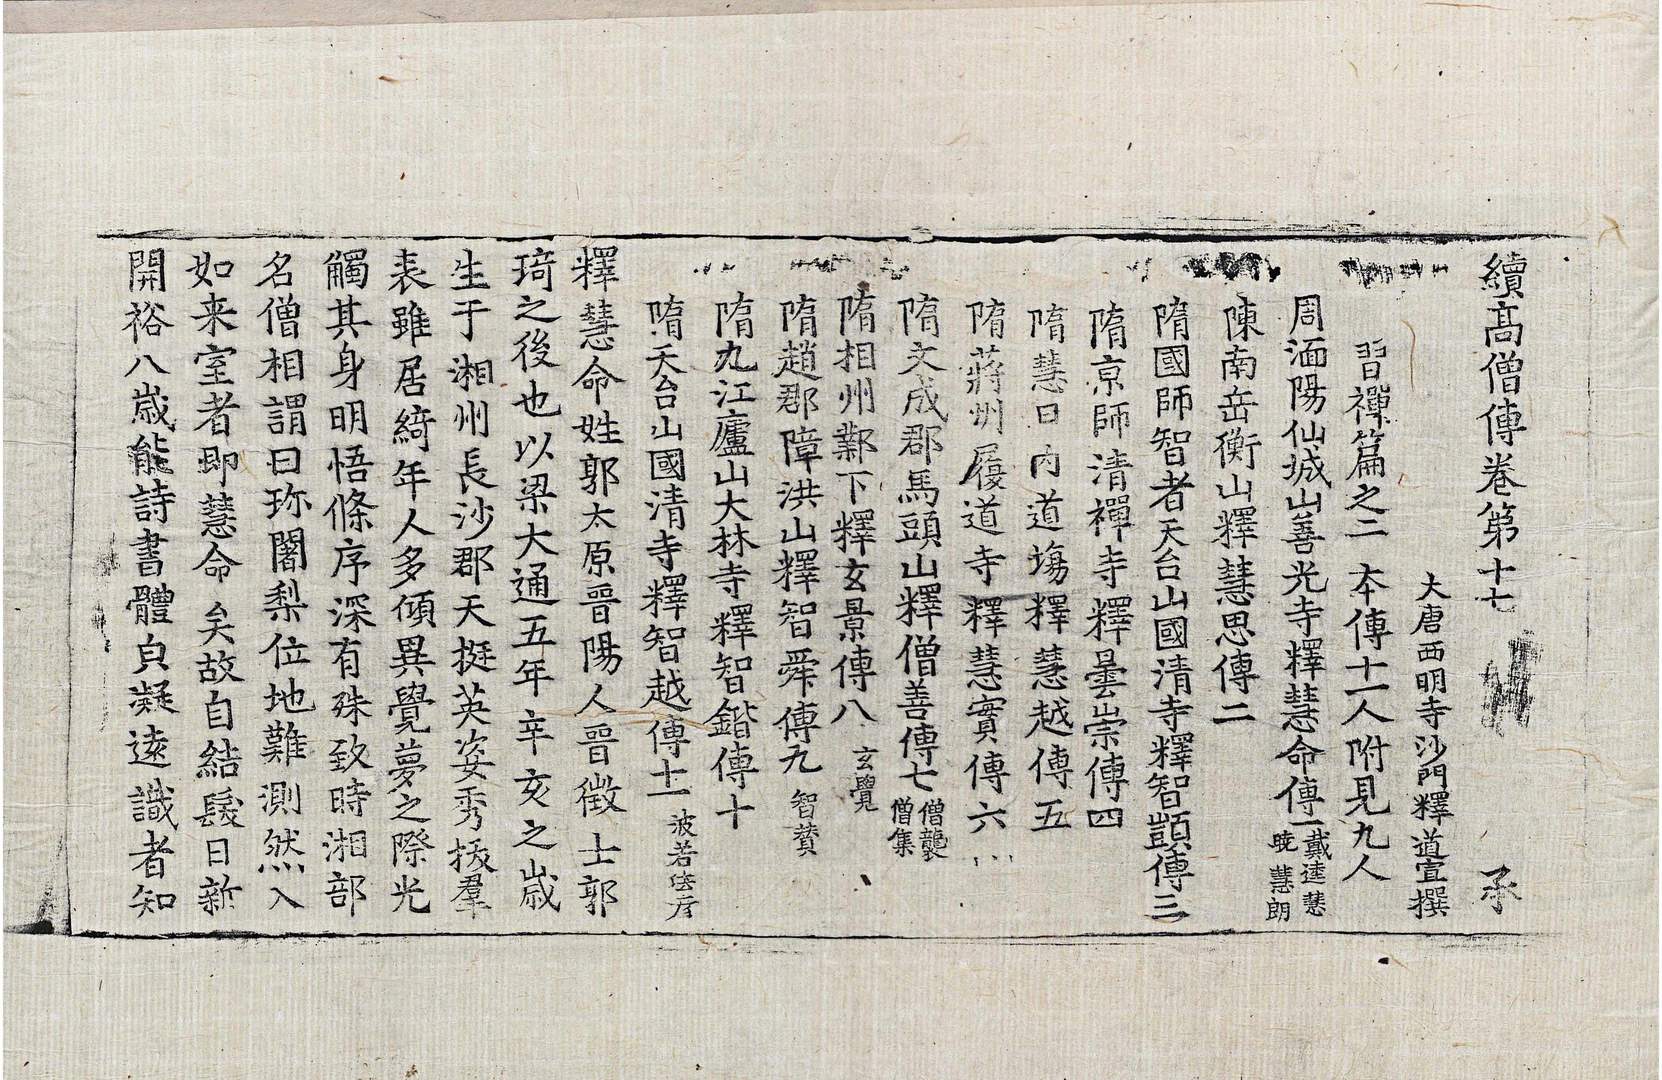 續高僧傳卷第十七 承
大唐西明寺沙門釋道宣撰
習禪篇之二 本傳十一人附見九人
周湎陽仙城山善光寺釋慧命傳一 戴逵 慧曉 慧朗
陳南岳衡山釋慧思傳二
隋國師智者天台山國清寺釋智顗傳三
隋京師清禪寺釋曇崇傳四
隋慧日內道塲釋慧越傳五
隋蔣州履道寺釋慧實傳六
隋文成郡馬頭山釋僧善傳七 僧襲 僧集
隋相州鄴下釋玄景傳八 玄覺
隋趙郡障洪山釋智舜傳九 智贊
隋九江廬山大林寺釋智鍇傳十
隋天台山國清寺釋智越傳十一 波若 法彦
釋慧命姓郭太原晉陽人晉徵士郭
琦之後也以梁大通五年辛亥之歲
生于湘州長沙郡天挺英姿秀拔羣
表雖居綺年人多傾異覺夢之際光
觸其身明悟條序深有殊致時湘部
名僧相謂曰珎闍梨位地難測然入
如来室者即慧命矣故自結髮日新
開裕八歲能詩書體貞凝遠識者知